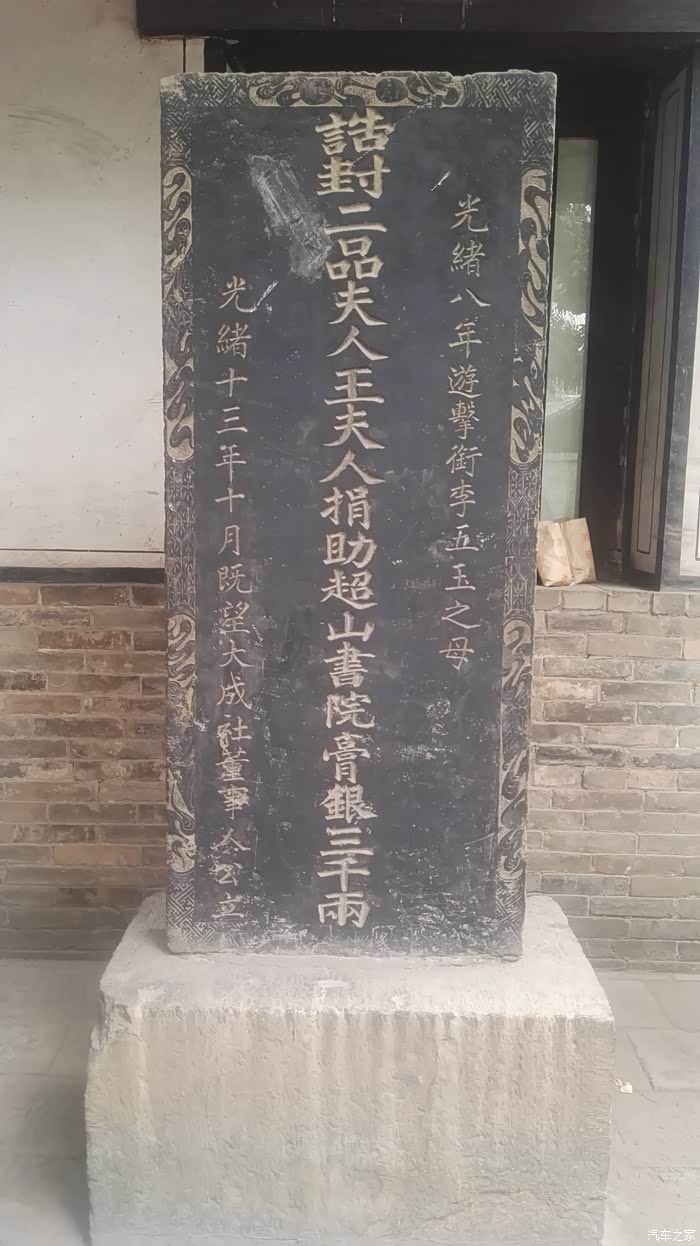 光緒八年遊擊銜李五玉之母
誥封二品夫人王夫人捐助超山書院膏銀三千兩
光緒十三年十月既望大成社董事仝公立
汽车之家